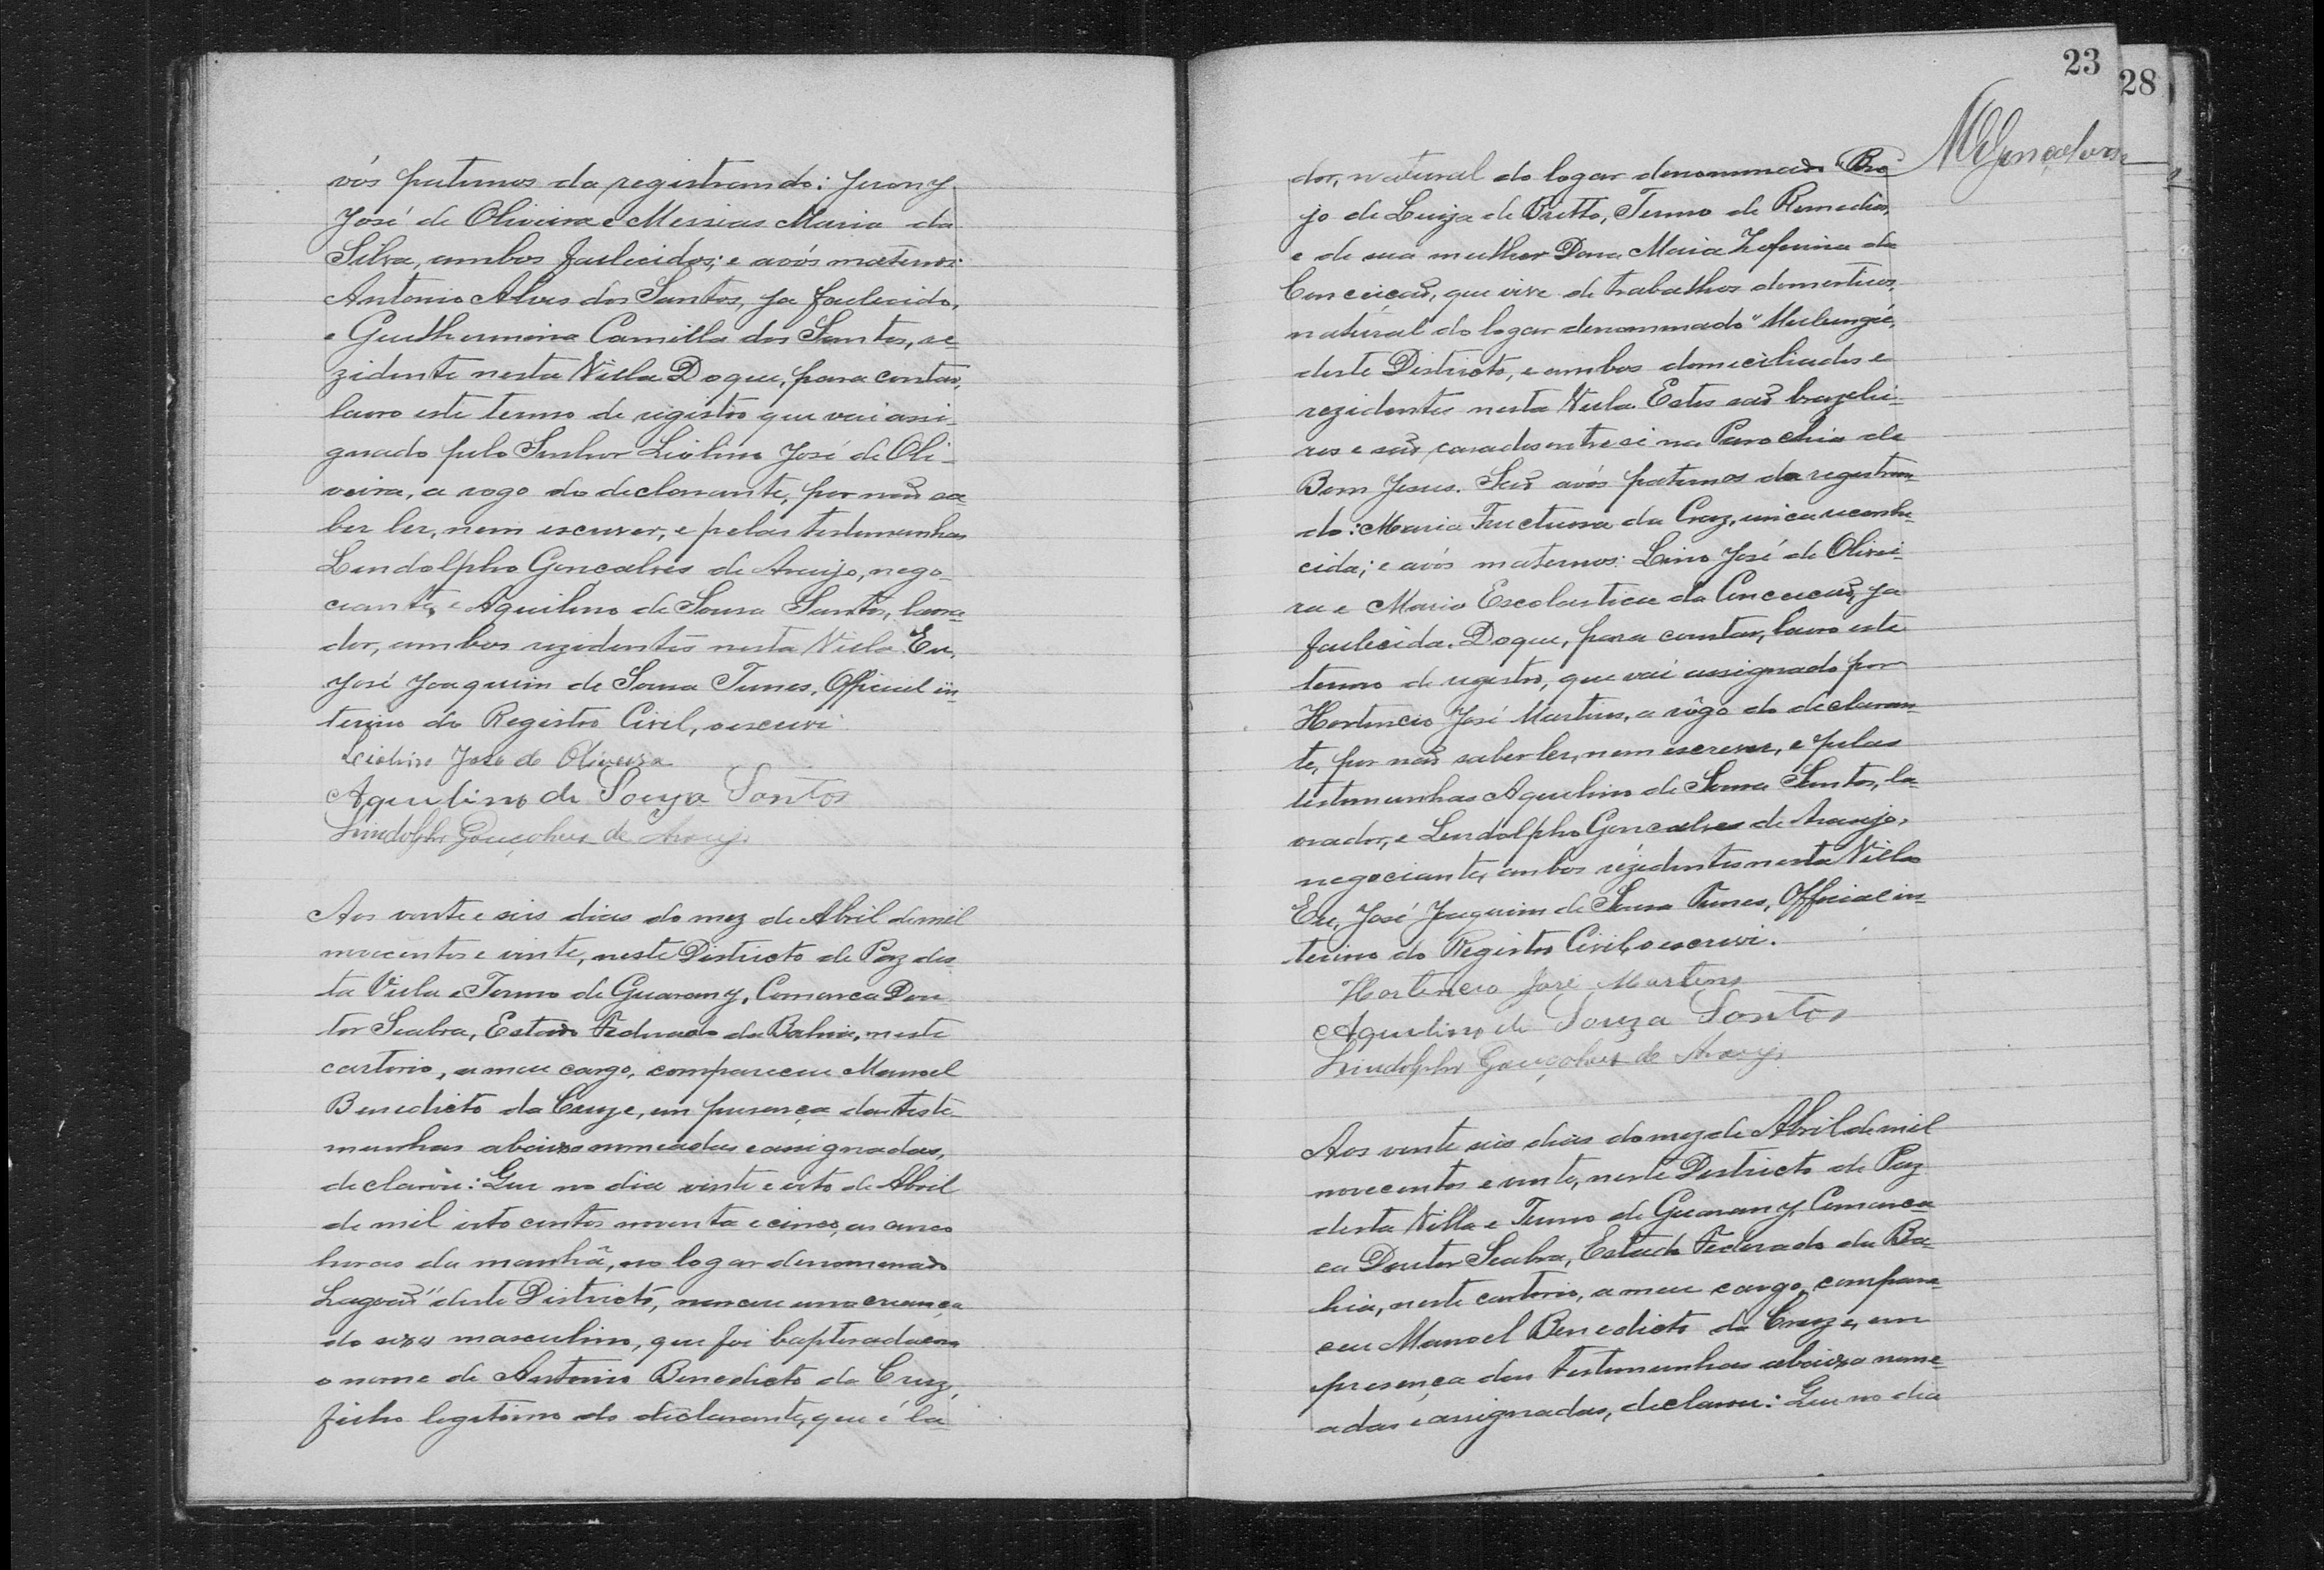 vós paternos da registrando: Jerony
José de Oliveira e Messias Maria da
Silva, ambos fallecidos; e avós maternos:
Antonio Alves dos Santos, ja fallecido,
e Guilhermina Camilla dos Santos, re-
zidente nesta Villa Do que, para contar,
lavro este termo de registro que vai assi-
gnado pelo Senhor Liolino José de Oli-
veira, a rogo do declarante, por não sa
ber ler, nem escrever, e pelas testemunhas
Lindolpho Goncalves de Araujo, nego-
ciante, e Aquilino de Sousa Santos, lavra-
dor, ambos rezidentes nesta Villa. Eu,
José Joaquim de Sousa Tunes, Official in-
terino do Registro Civil, o escrevi.
Liolino José de Oliveira
Aquilino de Souza Santos
Lindolpho Gonçalves de Araujo
Aos vinte e seis dias do mez de Abril de mil
novecentos e vinte, neste Districto de Paz des
ta Villa e Termo de Guarany, Comarca Dou
tor Seabra, Estado Federado da Bahia, neste
cartorio, a meu cargo, compareceu Manoel
Benedicto da Cruz e, em presença das teste-
munhas abaixo nomeadas e assignadas,
declarou: Que no dia vinte e oito de Abril
de mil oito centos noventa e cinco, as cinco
horas da manhã, no logar denomenado
Lagoão" deste Districto, nasceu uma creança
do sexo masculino, que foi baptizada com
o nome de Antonio Benedicto da Cruz,
filho legitimo do declarante, que é la-
23
28
MGonçalves
dor, natural do logar denominado "Bre
jo de Luiza de Britto, Termo de Remedios,
e de sua mulher Dona Maria Zeferina da
Conceição, que vive de trabalhos domesticos,
natural do logar denominado "Mulungú,
deste Districto, e ambos domiciliados e
rezidentes nesta Villa. Estes são brazilei-
ros e são casados entre si na Parochia de
Bom Jesus. São avós paternos da registran
do: Maria Fructuosa da Cruz, unica reconhe-
cida; e avós maternos: Lino José de Olivei-
ra e Maria Escolastica da Conceição, ja
fallecida. Do que, para constar, lavro este
termo de registro, que vai assignado por
Hortencio José Martins, a rôgo do declaran-
te, por não saber ler, nem escrever, e pelas
testemunhas Aquilino de Sousa Santos, la-
vrador, e Lindolpho Goncalves de Araujo,
negociante, ambos rezidentes nesta Villa
Eu, José Joaquim de Sousa Tunes, Official in-
terino do Registro Civil, o escrevi.
Hortencio José Martins
Aquilino de Souza Santos
Lindolpho Gonçalves de Araujo
Aos vinte seis dias do mez de Abril de mil
novecentos e vinte, neste Districto de Paz
desta Villa e Termo de Guarany, Comarca
ca Doutor Seabra, Estado Federado da Ba-
hia, neste cartorio, a meu cargo, compare
ceu Manoel Benedicto da Cruz e, em
presença das testemunhas abaixo nome-
adas e assignadas, declarou: Que no dia